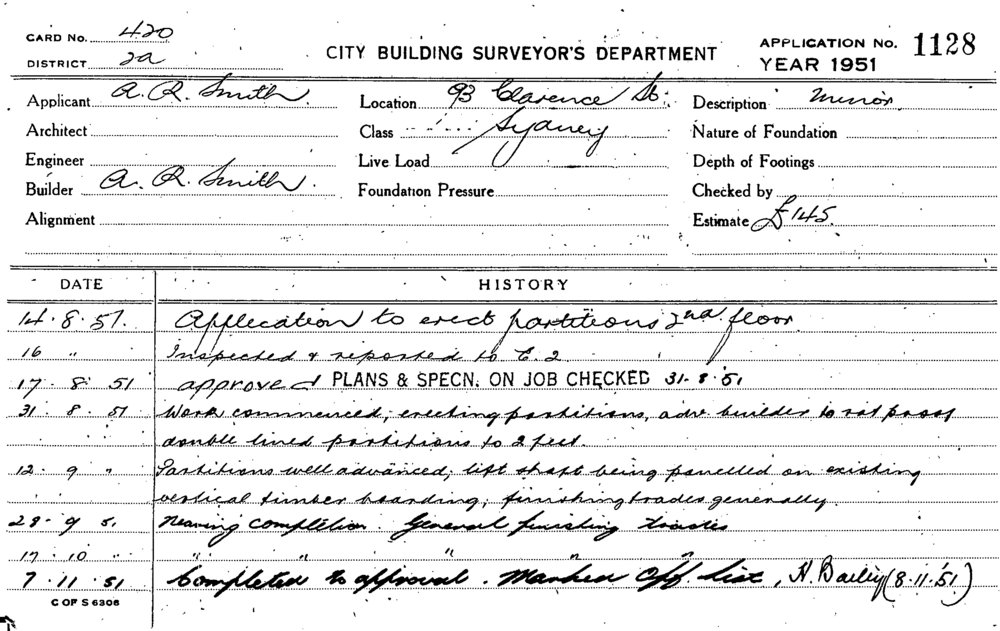 CARD No. 420
DISTRICT 2a
CITY BUILDING SURVEYOR'S DEPARTMENT
APPLICATION No. 1128
YEAR 1951
Applicant A. R. Smith. Location 93 Clarence St. Description Minor.
Architect Class Sydney Nature of Foundation
Engineer Live Load Depth of Footings
Builder A. R. Smith. Foundation Pressure Checked by
Alignment Estimate £145.
DATE HISTORY
14.8.51. Application to erect partitions 2nd floor.
16 " Inspected & reported to E.2
17.8.51 approved PLANS & SPECN. ON JOB CHECKED 31.8.51
31.8.51 Work commenced, erecting partitions, adv. builder to rat proof
double lined partitions to 2 feet.
12.9 " Partitions well advanced; lift shaft being panelled on existing
vertical timber boarding, finishing trades generally.
28.9 51 Nearing completion. General finishing trades
17.10 " " " " " "
7.11.51 Completed to approval. Marked off list, H. Bailey (8.11.51)
C OF S 6306